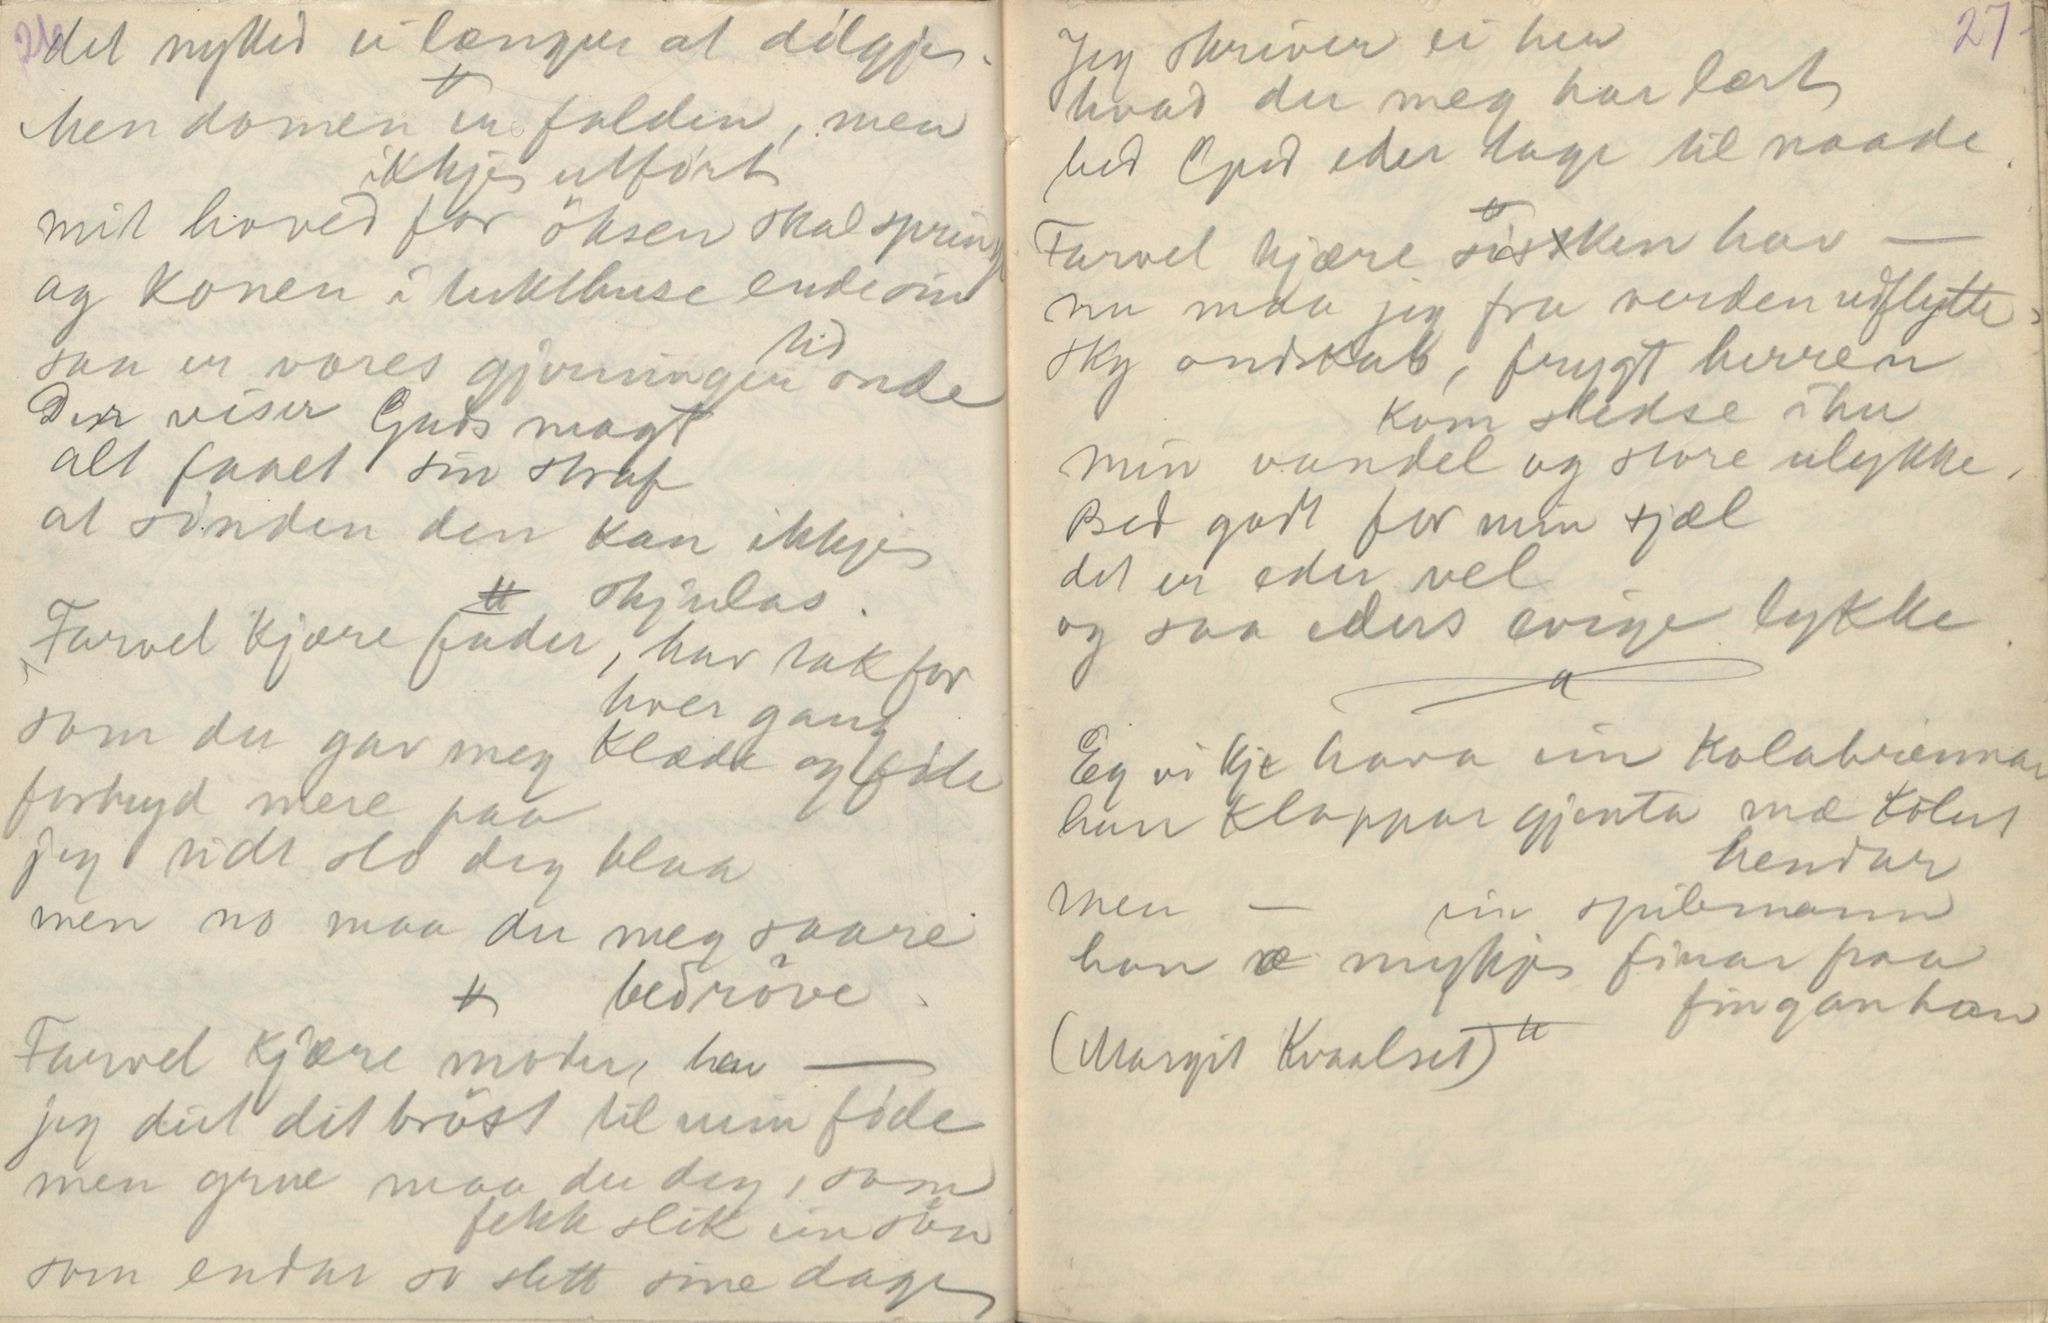 26
det nyttid ei længer at dölgje.
Men domen er falden, men
ikkje utfört
mit hoved for öksen skal springe
og konen i tukthuse ende sin
tid
saa er vores gjerninger onde
Der viser Guds magt
alt faaet sin straf
at sönden den kan ikkje
skjulas.
Farvel kjære fader, hav tak for
hver gang
som du gav meg klæde og föde
fortryd mere paa
jeg tidt slo dig blaa
men no maa du meg saare
bedröve.
Farvel kjære moder, hav —
jeg diet dit bröst til min föde
men grue maa du deg, som
fekk slik ein sön
som endar so slett sine dage
27
Jeg skriver ei her
hvad der meg har lært
bed Gud eder tage til naade.
Farvel kjære sisken hav —
nu maa jeg fra verden udflytte,
sky ondskab, frygt herren
kom stedse ihu
min vandel og store ulykke.
Bed godt for min sjæl
det er eder vel
og saa eders evige lykke.
Eg vi kje hava ein kolabrennar
han klappar gjenta mæ kolut
hendar
men — ein spilemann
han æ mykje finar paa
fingan han
(Margit Kvaalset)